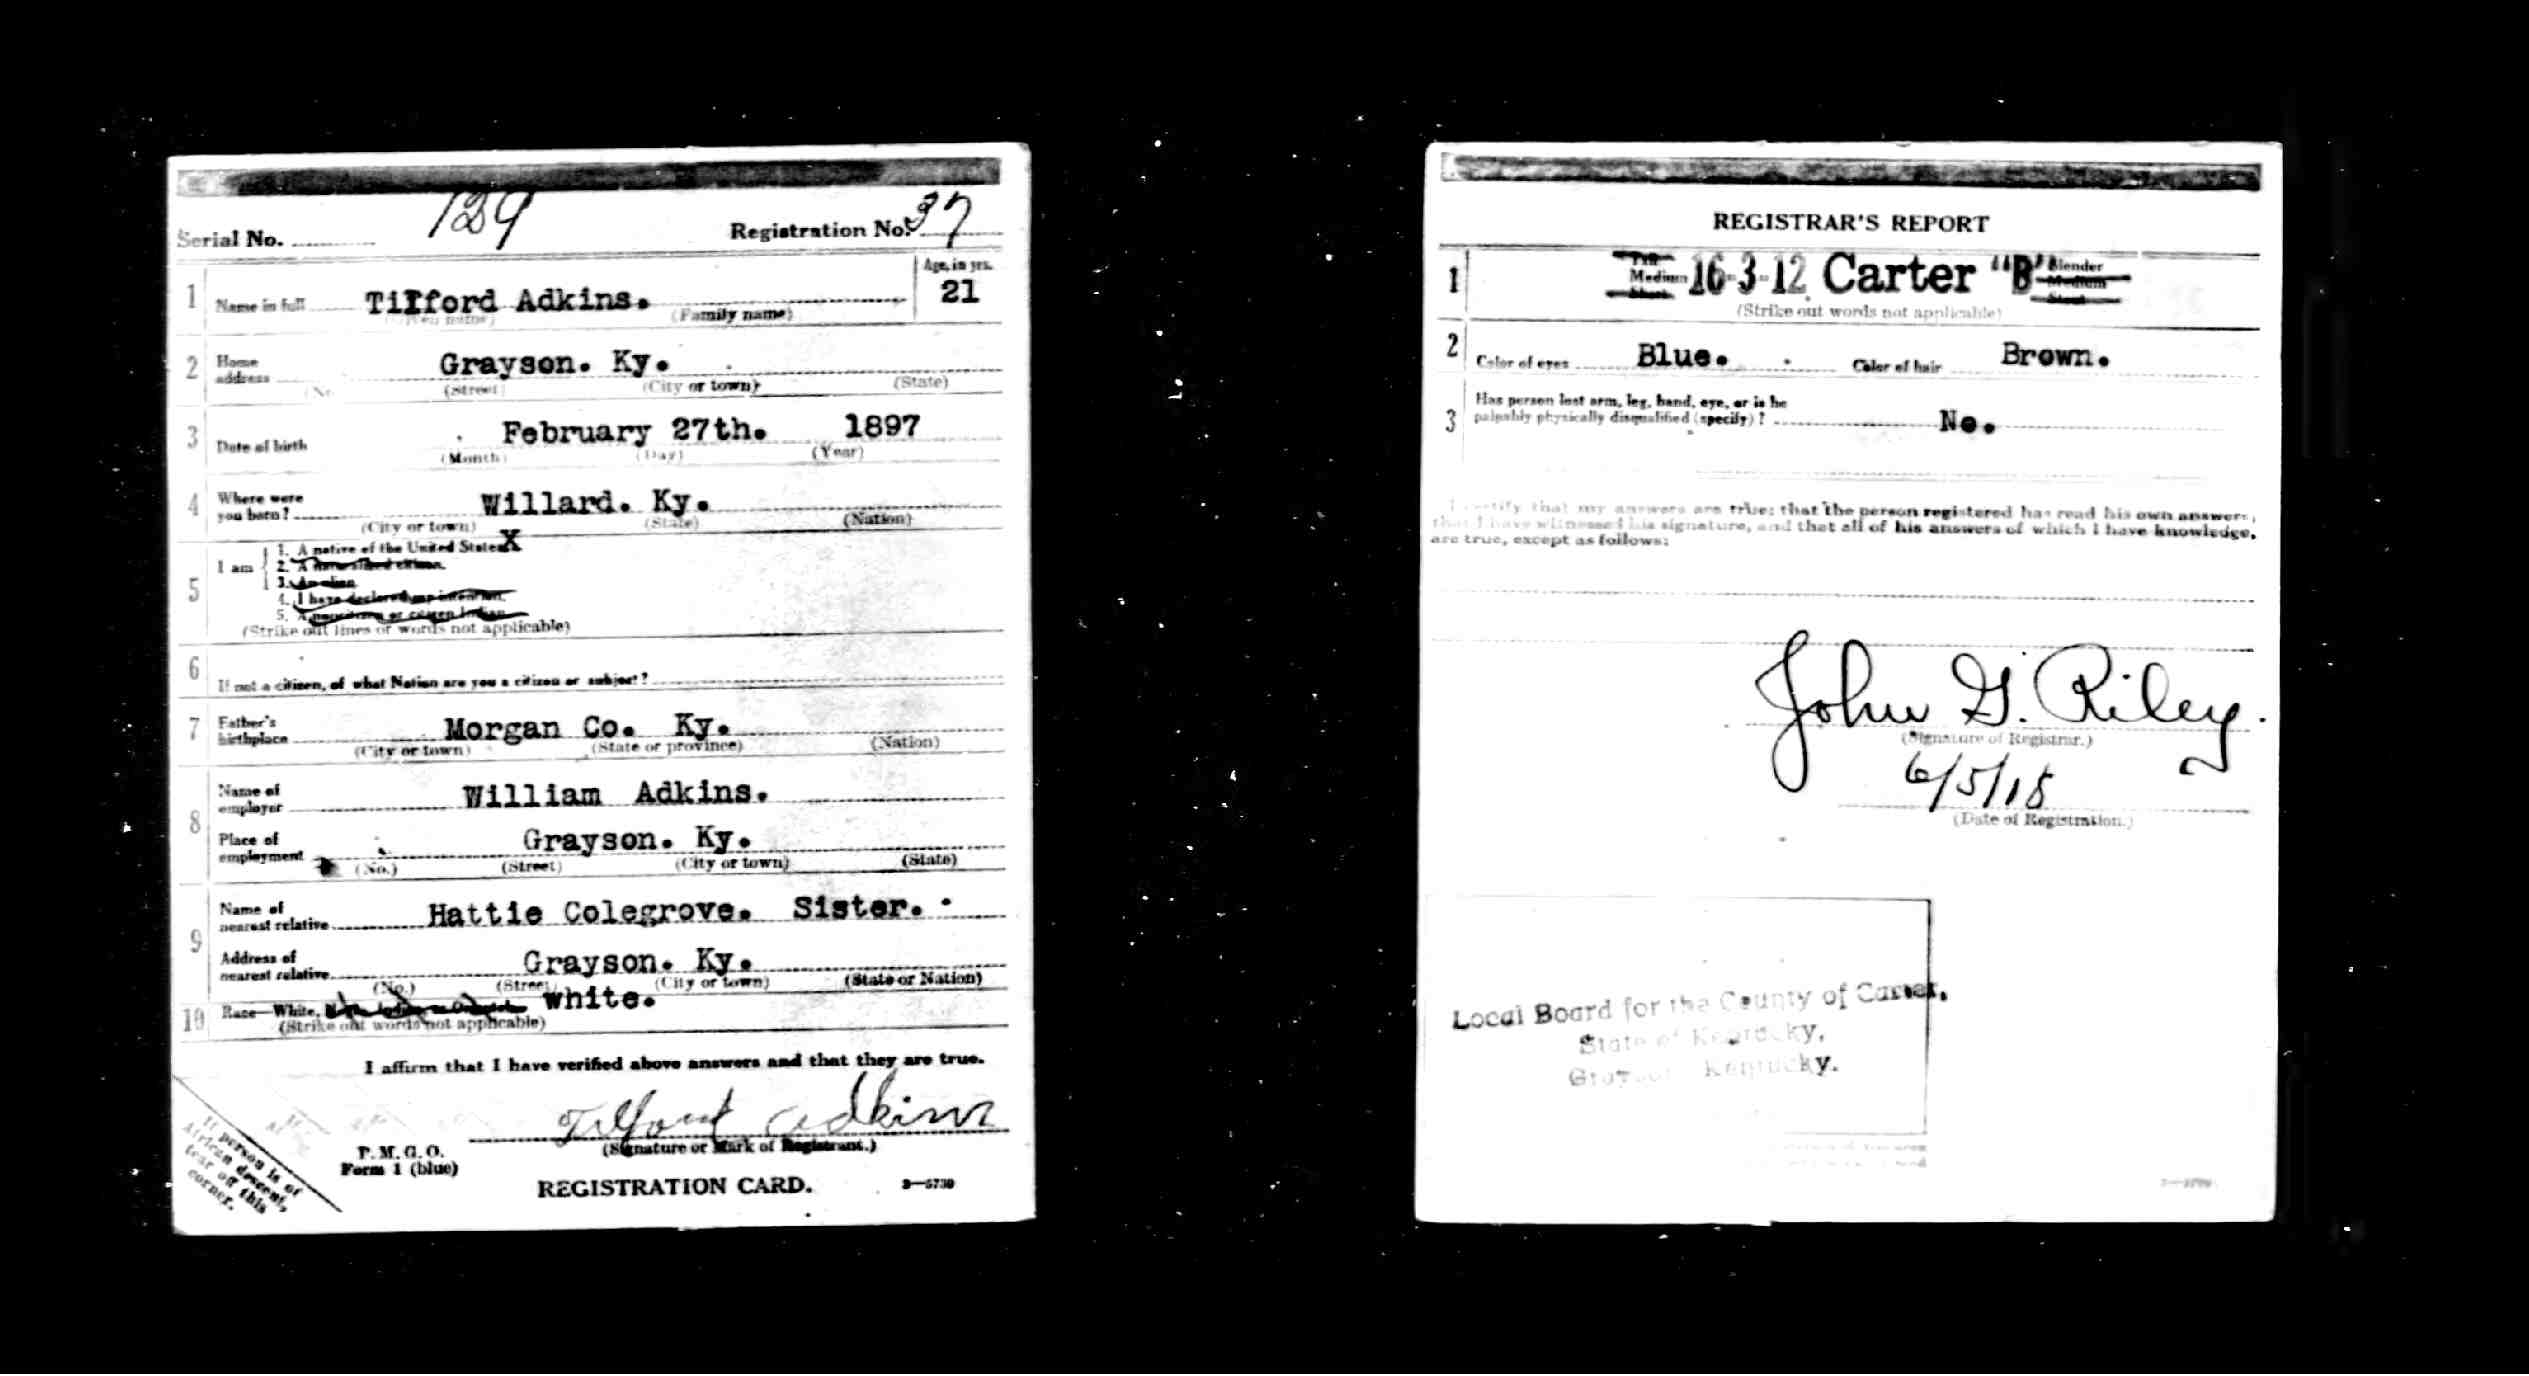 Serial No. 129 Registration No. 37
1 Name in full Tilford Adkins. Age, in yrs. 21
(Given name) (Family name)
2 Home address Grayson. Ky.
(No.) (Street) (City or town) (State)
3 Date of birth February 27th. 1897
(Month) (Day) (Year)
4 Where were you born? Willard. Ky.
(City or town) (State) (Nation)
5 I am 1. A native of the United States X
2. A naturalized citizen.
3. An alien.
4. I have declared my intention.
5. A noncitizen or citizen Indian.
(Strike out lines or words not applicable)
6 If not a citizen, of what Nation are you a citizen or subject?
7 Father's birthplace Morgan Co. Ky.
(City or town) (State or province) (Nation)
8 Name of employer William Adkins.
Place of employment Grayson. Ky.
(No.) (Street) (City or town) (State)
9 Name of nearest relative Hattie Colegrove. Sister.
Address of nearest relative Grayson. Ky.
(No.) (Street) (City or town) (State or Nation)
10 Race—White, white.
(Strike out words not applicable)
I affirm that I have verified above answers and that they are true.
Tilford Adkins
(Signature or Mark of Registrant.)
P. M. G. O.
Form 1 (blue)
REGISTRATION CARD. 3—5730
If person is of
African descent,
tear off this
corner.
REGISTRAR'S REPORT
1 Tall Medium Short 16-3-12 Carter "B" Slender Medium Stout
(Strike out words not applicable)
2 Color of eyes Blue. Color of hair Brown.
3 Has person lost arm, leg, hand, eye, or is he
palpably physically disqualified (specify)? No.
I certify that my answers are true; that the person registered has read his own answers,
that I have witnessed his signature, and that all of his answers of which I have knowledge,
are true, except as follows:
John G. Riley.
(Signature of Registrar.)
6/5/18
(Date of Registration.)
Local Board for the County of Carter,
State of Kentucky,
Grayson Kentucky.